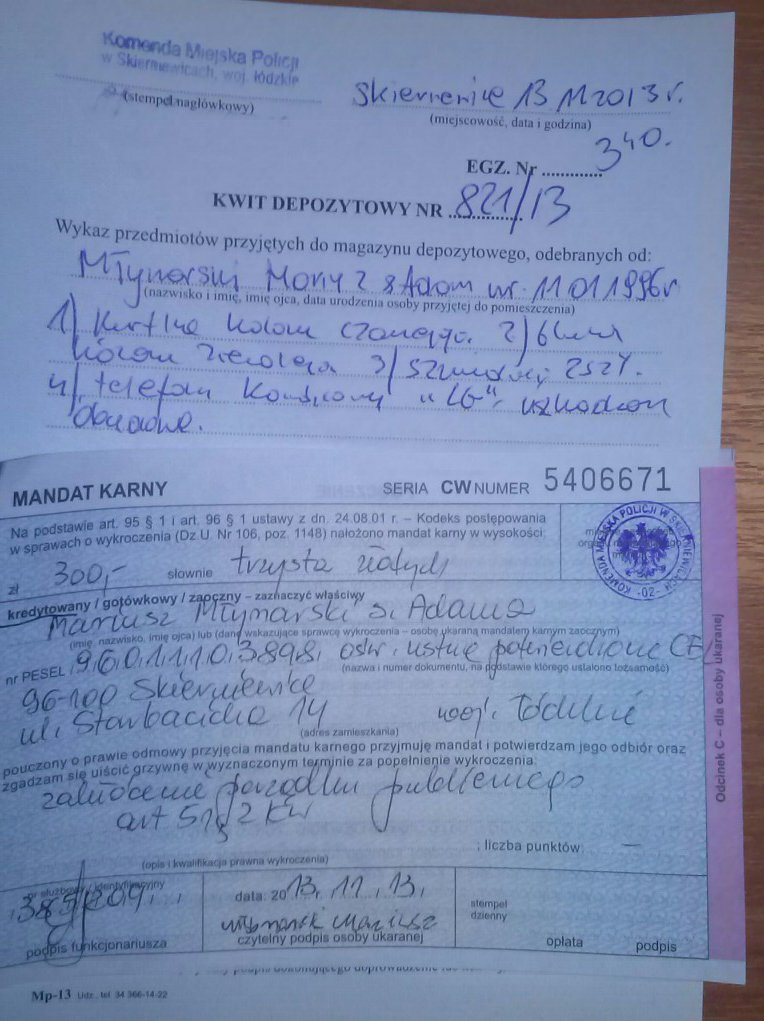 Komenda Miejska Policji
w Skierniewicach, woj. łódzkie
(stempel nagłówkowy)
Skierniewice 13 11 2013 r.
(miejscowość, data i godzina)
EGZ. Nr 340.
KWIT DEPOZYTOWY NR 821/13
Wykaz przedmiotów przyjętych do magazynu depozytowego, odebranych od:
Młynarski s Adam ur. 11 01 1996 r
(nazwisko i imię, imię ojca, data urodzenia osoby przyjętej do pomieszczenia)
1) Kurtka czarnego 2)
3) 2 szt.
4) telefon komórkowy "LG"
MANDAT KARNY SERIA CW NUMER 5406671
Na podstawie art. 95 § 1 i art. 96 § 1 ustawy z dn. 24.08.01 r. – Kodeks postępowania
w sprawach o wykroczenia (Dz.U. Nr 106, poz. 1148) nałożono mandat karny w wysokości:
KOMENDA MIEJSKA POLICJI W SKIERNIEWICACH -02-
zł 300,- słownie trzysta złotych
kredytowany / gotówkowy / zaoczny – zaznaczyć właściwy
Mariusz Młynarski s. Adama
(imię, nazwisko, imię ojca) lub (dane wskazujące sprawcę wykroczenia – osobę ukaraną mandatem karnym zaocznym)
nr PESEL ośw. ustne potwierdzone
(nazwa i numer dokumentu, na podstawie którego ustalono tożsamość)
96-100 Skierniewice
ul. 14 woj. łódzkie
(adres zamieszkania)
pouczony o prawie odmowy przyjęcia mandatu karnego przyjmuję mandat i potwierdzam jego odbiór oraz
zgadzam się uiścić grzywnę w wyznaczonym terminie za popełnienie wykroczenia:
zakłócenie porządku publicznego
art 51 § 2 KW
; liczba punktów: —
(opis i kwalifikacja prawna wykroczenia)
nr służbowy / identyfikacyjny
podpis funkcjonariusza
data: 2013, 11, 13,
Młynarski Mariusz
czytelny podpis osoby ukaranej
stempel
dzienny
opłata podpis
Odcinek C – dla osoby ukaranej
Mp-13 Udz. tel. 34 366-14-22